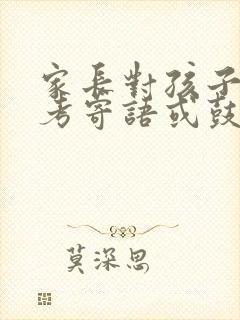 家長對孩子
考寄語或鼓
莫深思